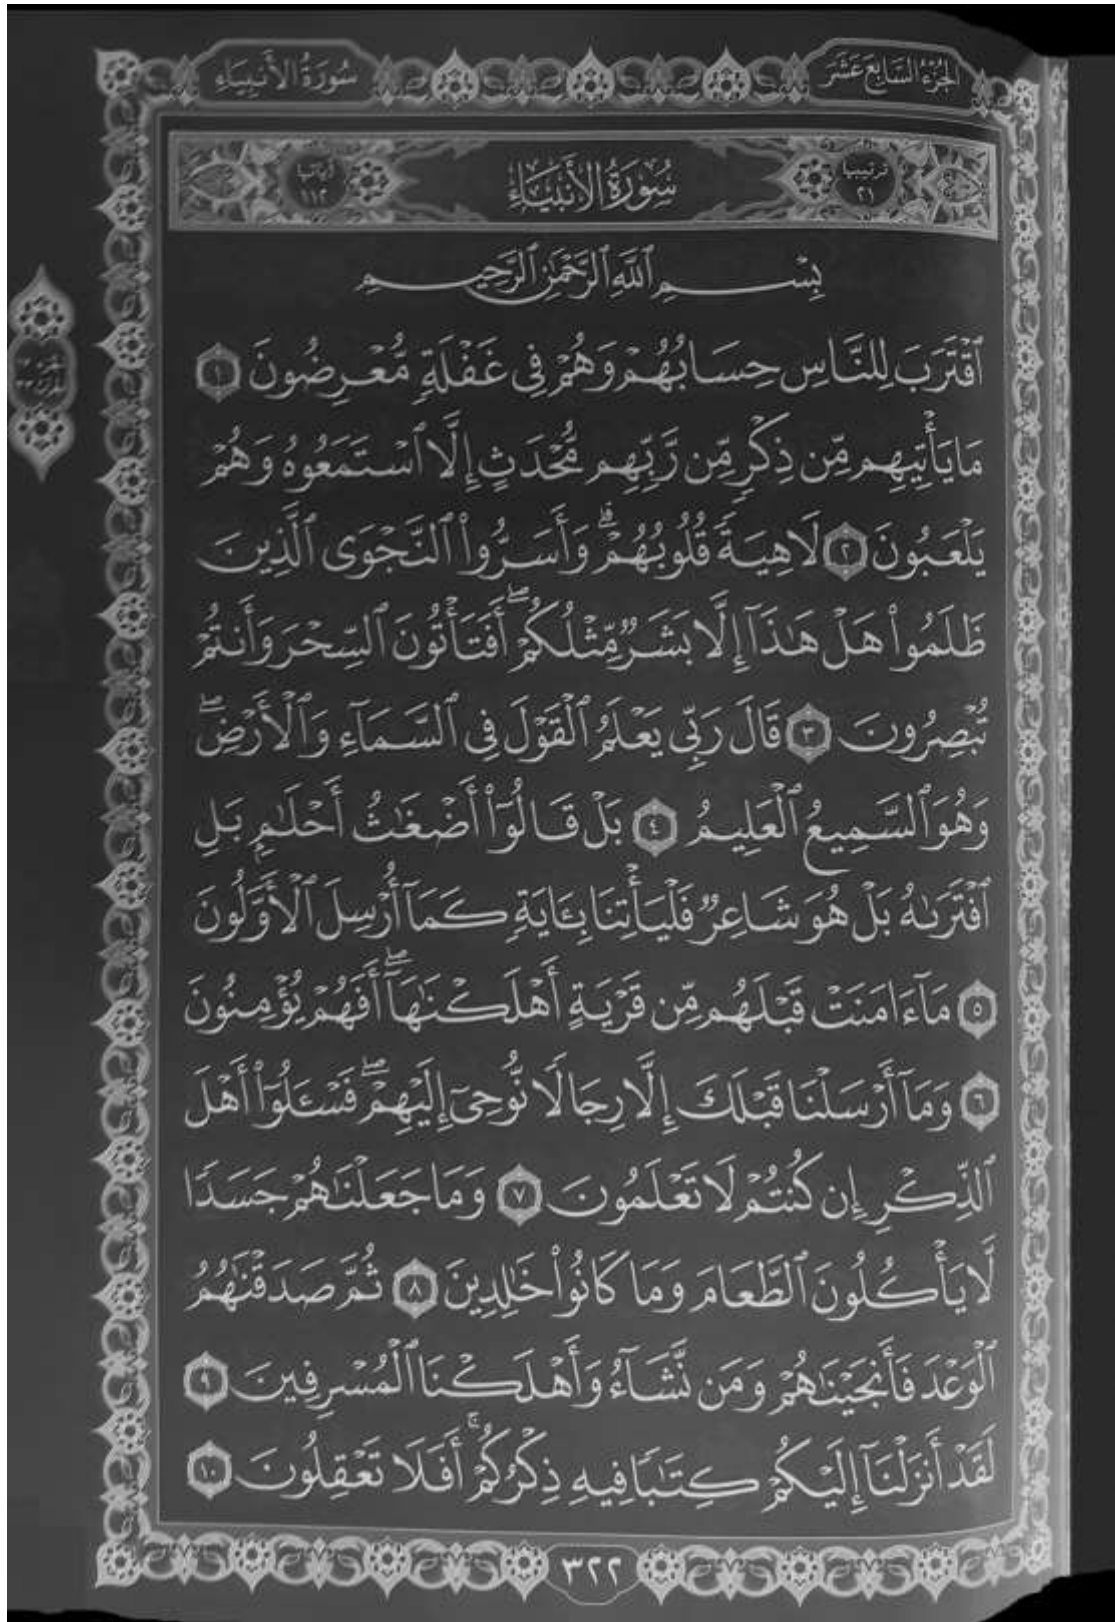 الجزء السابع عشر
سورة الأنبياء
ترتيبها ٢١
سُورَةُ الأَنبِيَاءِ
آياتها ١١٢
بِسْمِ ٱللَّهِ ٱلرَّحْمَٰنِ ٱلرَّحِيمِ
ٱقْتَرَبَ لِلنَّاسِ حِسَابُهُمْ وَهُمْ فِى غَفْلَةٍ مُّعْرِضُونَ ١
مَا يَأْتِيهِم مِّن ذِكْرٍ مِّن رَّبِّهِم مُّحْدَثٍ إِلَّا ٱسْتَمَعُوهُ وَهُمْ
يَلْعَبُونَ ٢ لَاهِيَةً قُلُوبُهُمْ ۗ وَأَسَرُّوا۟ ٱلنَّجْوَى ٱلَّذِينَ
ظَلَمُوا۟ هَلْ هَٰذَآ إِلَّا بَشَرٌ مِّثْلُكُمْ ۖ أَفَتَأْتُونَ ٱلسِّحْرَ وَأَنتُمْ
تُبْصِرُونَ ٣ قَالَ رَبِّى يَعْلَمُ ٱلْقَوْلَ فِى ٱلسَّمَآءِ وَٱلْأَرْضِ ۖ
وَهُوَ ٱلسَّمِيعُ ٱلْعَلِيمُ ٤ بَلْ قَالُوٓا۟ أَضْغَٰثُ أَحْلَٰمٍۭ بَلِ
ٱفْتَرَىٰهُ بَلْ هُوَ شَاعِرٌ فَلْيَأْتِنَا بِـَٔايَةٍ كَمَآ أُرْسِلَ ٱلْأَوَّلُونَ
٥ مَآ ءَامَنَتْ قَبْلَهُم مِّن قَرْيَةٍ أَهْلَكْنَٰهَآ ۖ أَفَهُمْ يُؤْمِنُونَ
٦ وَمَآ أَرْسَلْنَا قَبْلَكَ إِلَّا رِجَالًا نُّوحِىٓ إِلَيْهِمْ ۖ فَسْـَٔلُوٓا۟ أَهْلَ
ٱلذِّكْرِ إِن كُنتُمْ لَا تَعْلَمُونَ ٧ وَمَا جَعَلْنَٰهُمْ جَسَدًا
لَّا يَأْكُلُونَ ٱلطَّعَامَ وَمَا كَانُوا۟ خَٰلِدِينَ ٨ ثُمَّ صَدَقْنَٰهُمُ
ٱلْوَعْدَ فَأَنجَيْنَٰهُمْ وَمَن نَّشَآءُ وَأَهْلَكْنَا ٱلْمُسْرِفِينَ ٩
لَقَدْ أَنزَلْنَآ إِلَيْكُمْ كِتَٰبًا فِيهِ ذِكْرُكُمْ ۖ أَفَلَا تَعْقِلُونَ ١٠
٣٢٢